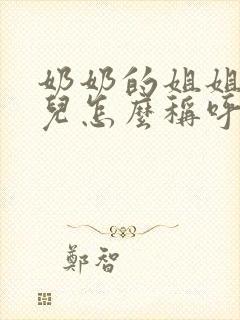 奶奶的姐姐
兒怎麼稱呼
鄭智